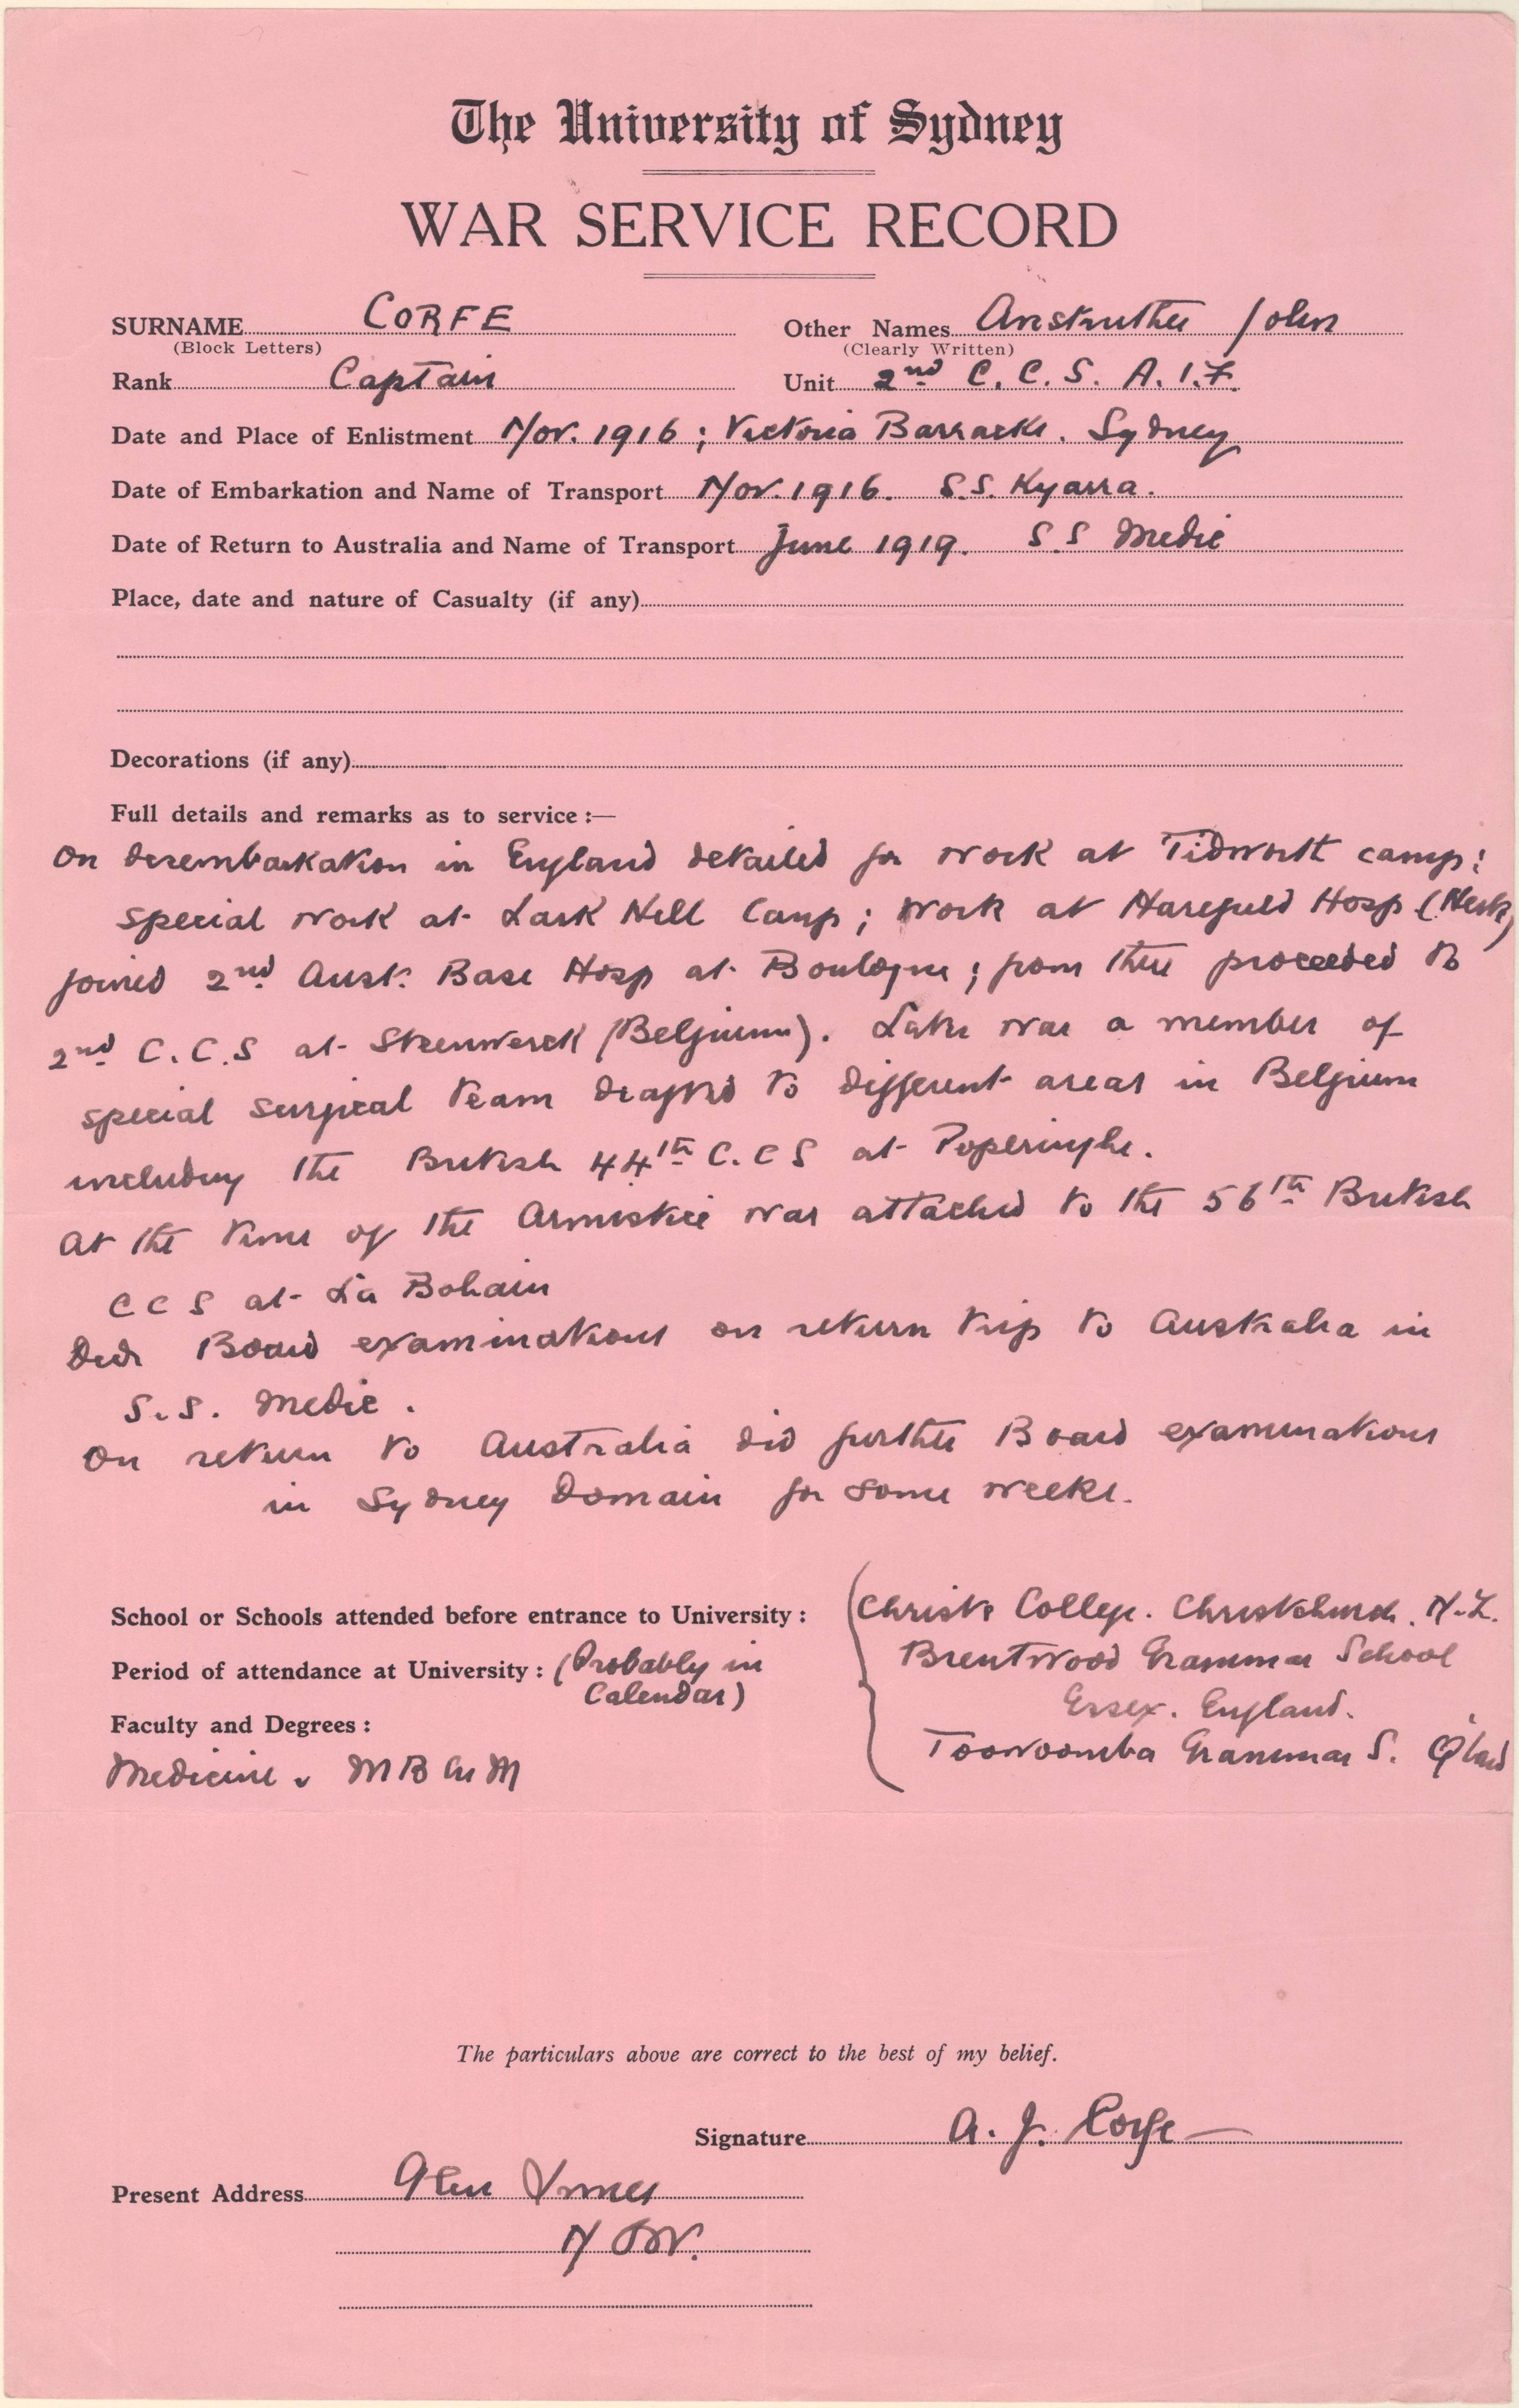 The University of Sydney
WAR SERVICE RECORD
SURNAME CORFE Other Names Anstruther John
(Block Letters) (Clearly Written)
Rank Captain Unit 2nd C. C. S. A. I. F.
Date and Place of Enlistment Nov. 1916 ; Victoria Barracks. Sydney
Date of Embarkation and Name of Transport Nov. 1916. S.S. Kyarra.
Date of Return to Australia and Name of Transport June 1919. S.S Medic
Place, date and nature of Casualty (if any)
Decorations (if any)
Full details and remarks as to service :—
On disembarkation in England detailed for work at Tidworth camp;
special work at Lark Hill Camp; work at Harefield Hosp
joined 2nd Aust. Base Hosp at Boulogne; from there proceeded to
2nd C.C.S at Steenwerck (Belgium). Later was a member of
special surgical team drafted to different areas in Belgium
including the British 44th C.C S at Poperinghe.
At the time of the Armistice was attached to the 56th British
C C S at La Bohain
Did Board examinations on return trip to Australia in
S.S. Medic.
On return to Australia did further Board examinations
in Sydney Domain for some weeks.
School or Schools attended before entrance to University : Christs College. Christchurch. N.Z.
Period of attendance at University : (Probably in Calendar) Brentwood Grammar School
Essex. England.
Faculty and Degrees : Toowoomba Grammar S. Q'land
Medicine. M B Ch M
The particulars above are correct to the best of my belief.
Signature A. J. Corfe
Present Address Glen Innes
N S W.